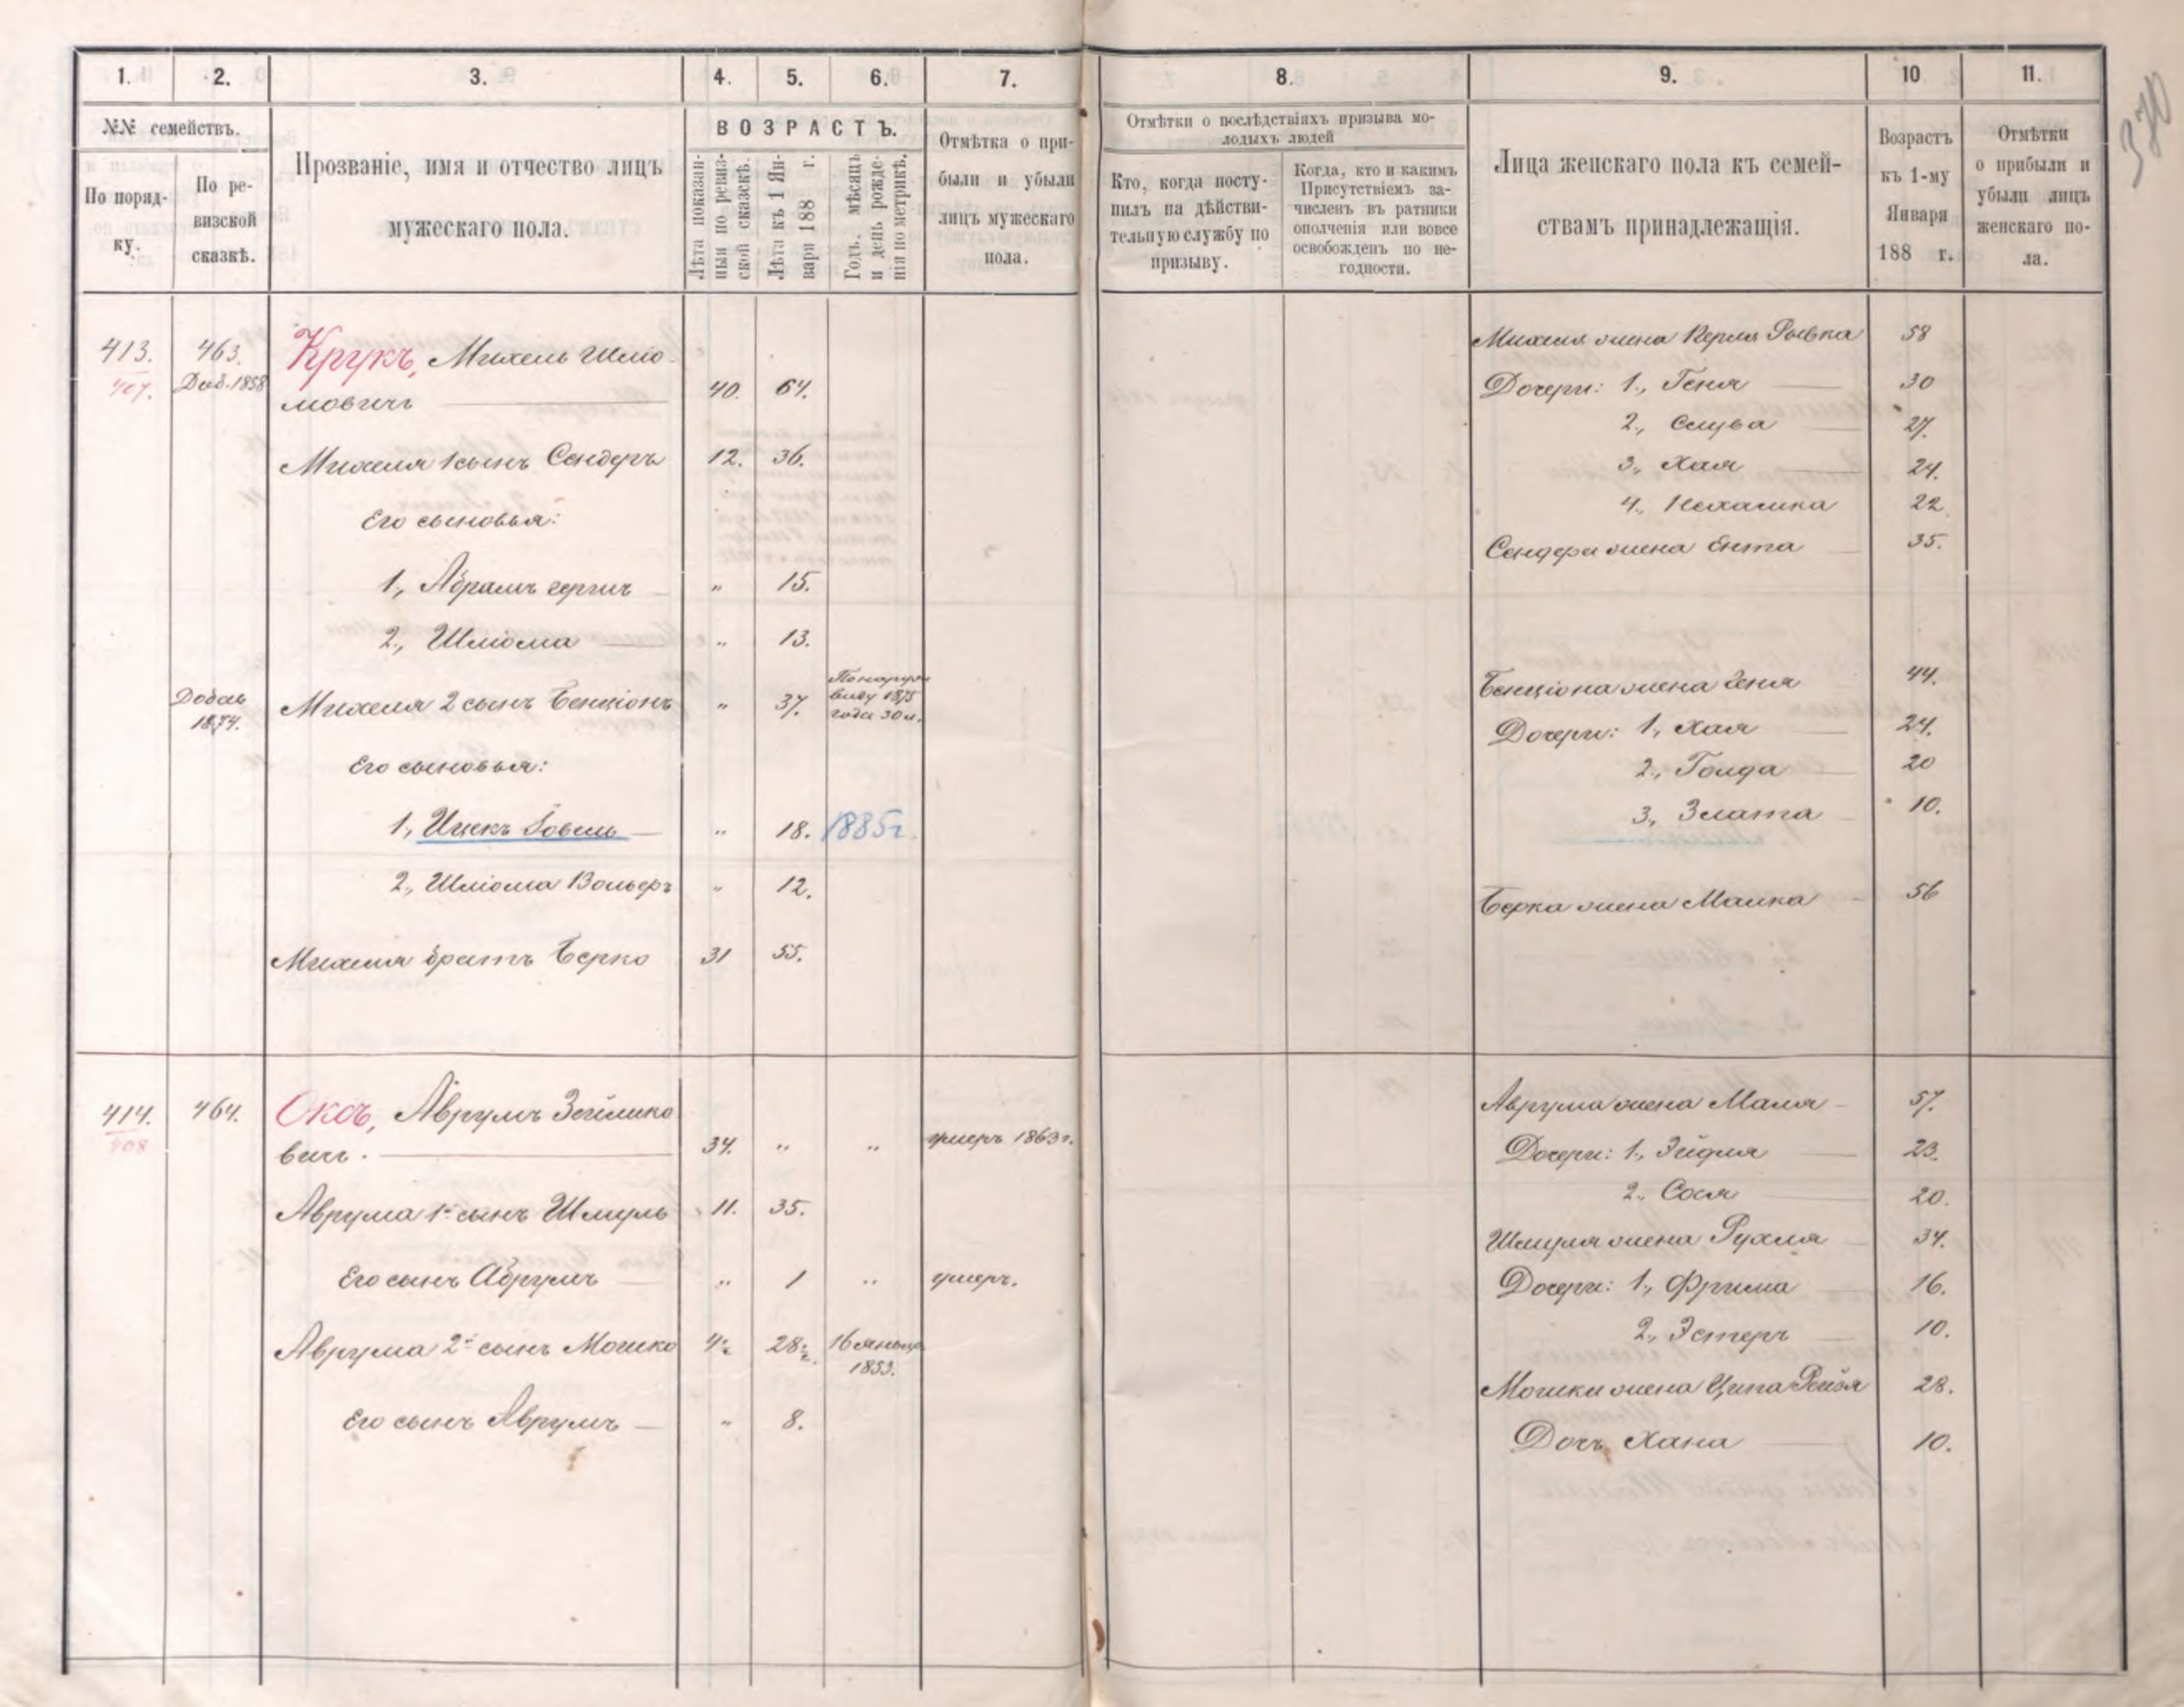 370
1. 2. 3. 4. 5. 6. 7. 8. 9. 10 11.
№№ семействъ.
По поряд-
ку.
По ре-
визской
сказкѣ.
Прозваніе, имя и отчество лицъ
мужескаго пола.
ВОЗРАСТЪ.
Лѣта показан-
ныя по ревиз-
ской сказкѣ.
Лѣта къ 1 Ян-
варя 188 г.
Годъ, мѣсяцъ
и день рожде-
нія по метрикѣ.
Отмѣтка о при-
были и убыли
лицъ мужескаго
пола.
Отмѣтки о послѣдствіяхъ призыва мо-
лодыхъ людей
Кто, когда посту-
пилъ на дѣйстви-
тельную службу по
призыву.
Когда, кто и какимъ
Присутствіемъ за-
численъ въ ратники
ополченія или вовсе
освобожденъ по не-
годности.
Лица женскаго пола къ семей-
ствамъ принадлежащія.
Возрастъ
къ 1-му
Января
188 г.
Отмѣтки
о прибыли и
убыли лицъ
женскаго по-
ла.
413. 463. Крукъ, Михель Шліо-
407. Доб. 1858
мовичъ 40. 64.
Михеля 1 сынъ Сендеръ 12. 36.
Его сыновья:
1., Абрамъ " 15.
2., Шліома " 13.
Добав
1874.
Михеля 2 сынъ Бенціонъ " 37.
виду 1875
года 30 л.
Его сыновья:
1, Ицекъ Іовель " 18. 1885 г.
2., Шліома Вольфъ " 12.
Михеля братъ Берко 31 55.
414. 464. Оксъ, Аврумъ Зейлико
408
вичъ. 34. " " умеръ 1863 г.
Аврума 1й сынъ Шмуль 11. 35.
Его сынъ Абрумъ " 1 " умеръ.
Аврума 2й сынъ Мошко 4½ 28½ 16 января
1853.
Его сынъ Аврумъ " 8.
Михеля жена Перля Рывка 58
Дочери: 1., Геня 30
2., Слува 27.
3., Хая 24.
4., Нехамка 22
Сендера жена Ента 35.
Бенціона жена Геня 44.
Дочери: 1, Хая 24.
2., Голда 20
3, Злата 10.
Берка жена Малка 56
Аврума жена Маля 57.
Дочери: 1., Эйдля 23.
2., Сося 20.
Шмуля жена Рухля 34.
Дочери: 1., Фрима 16.
2., Эстеръ 10.
Мошки жена Ципа Рейзя 28.
Дочь Хана 10.